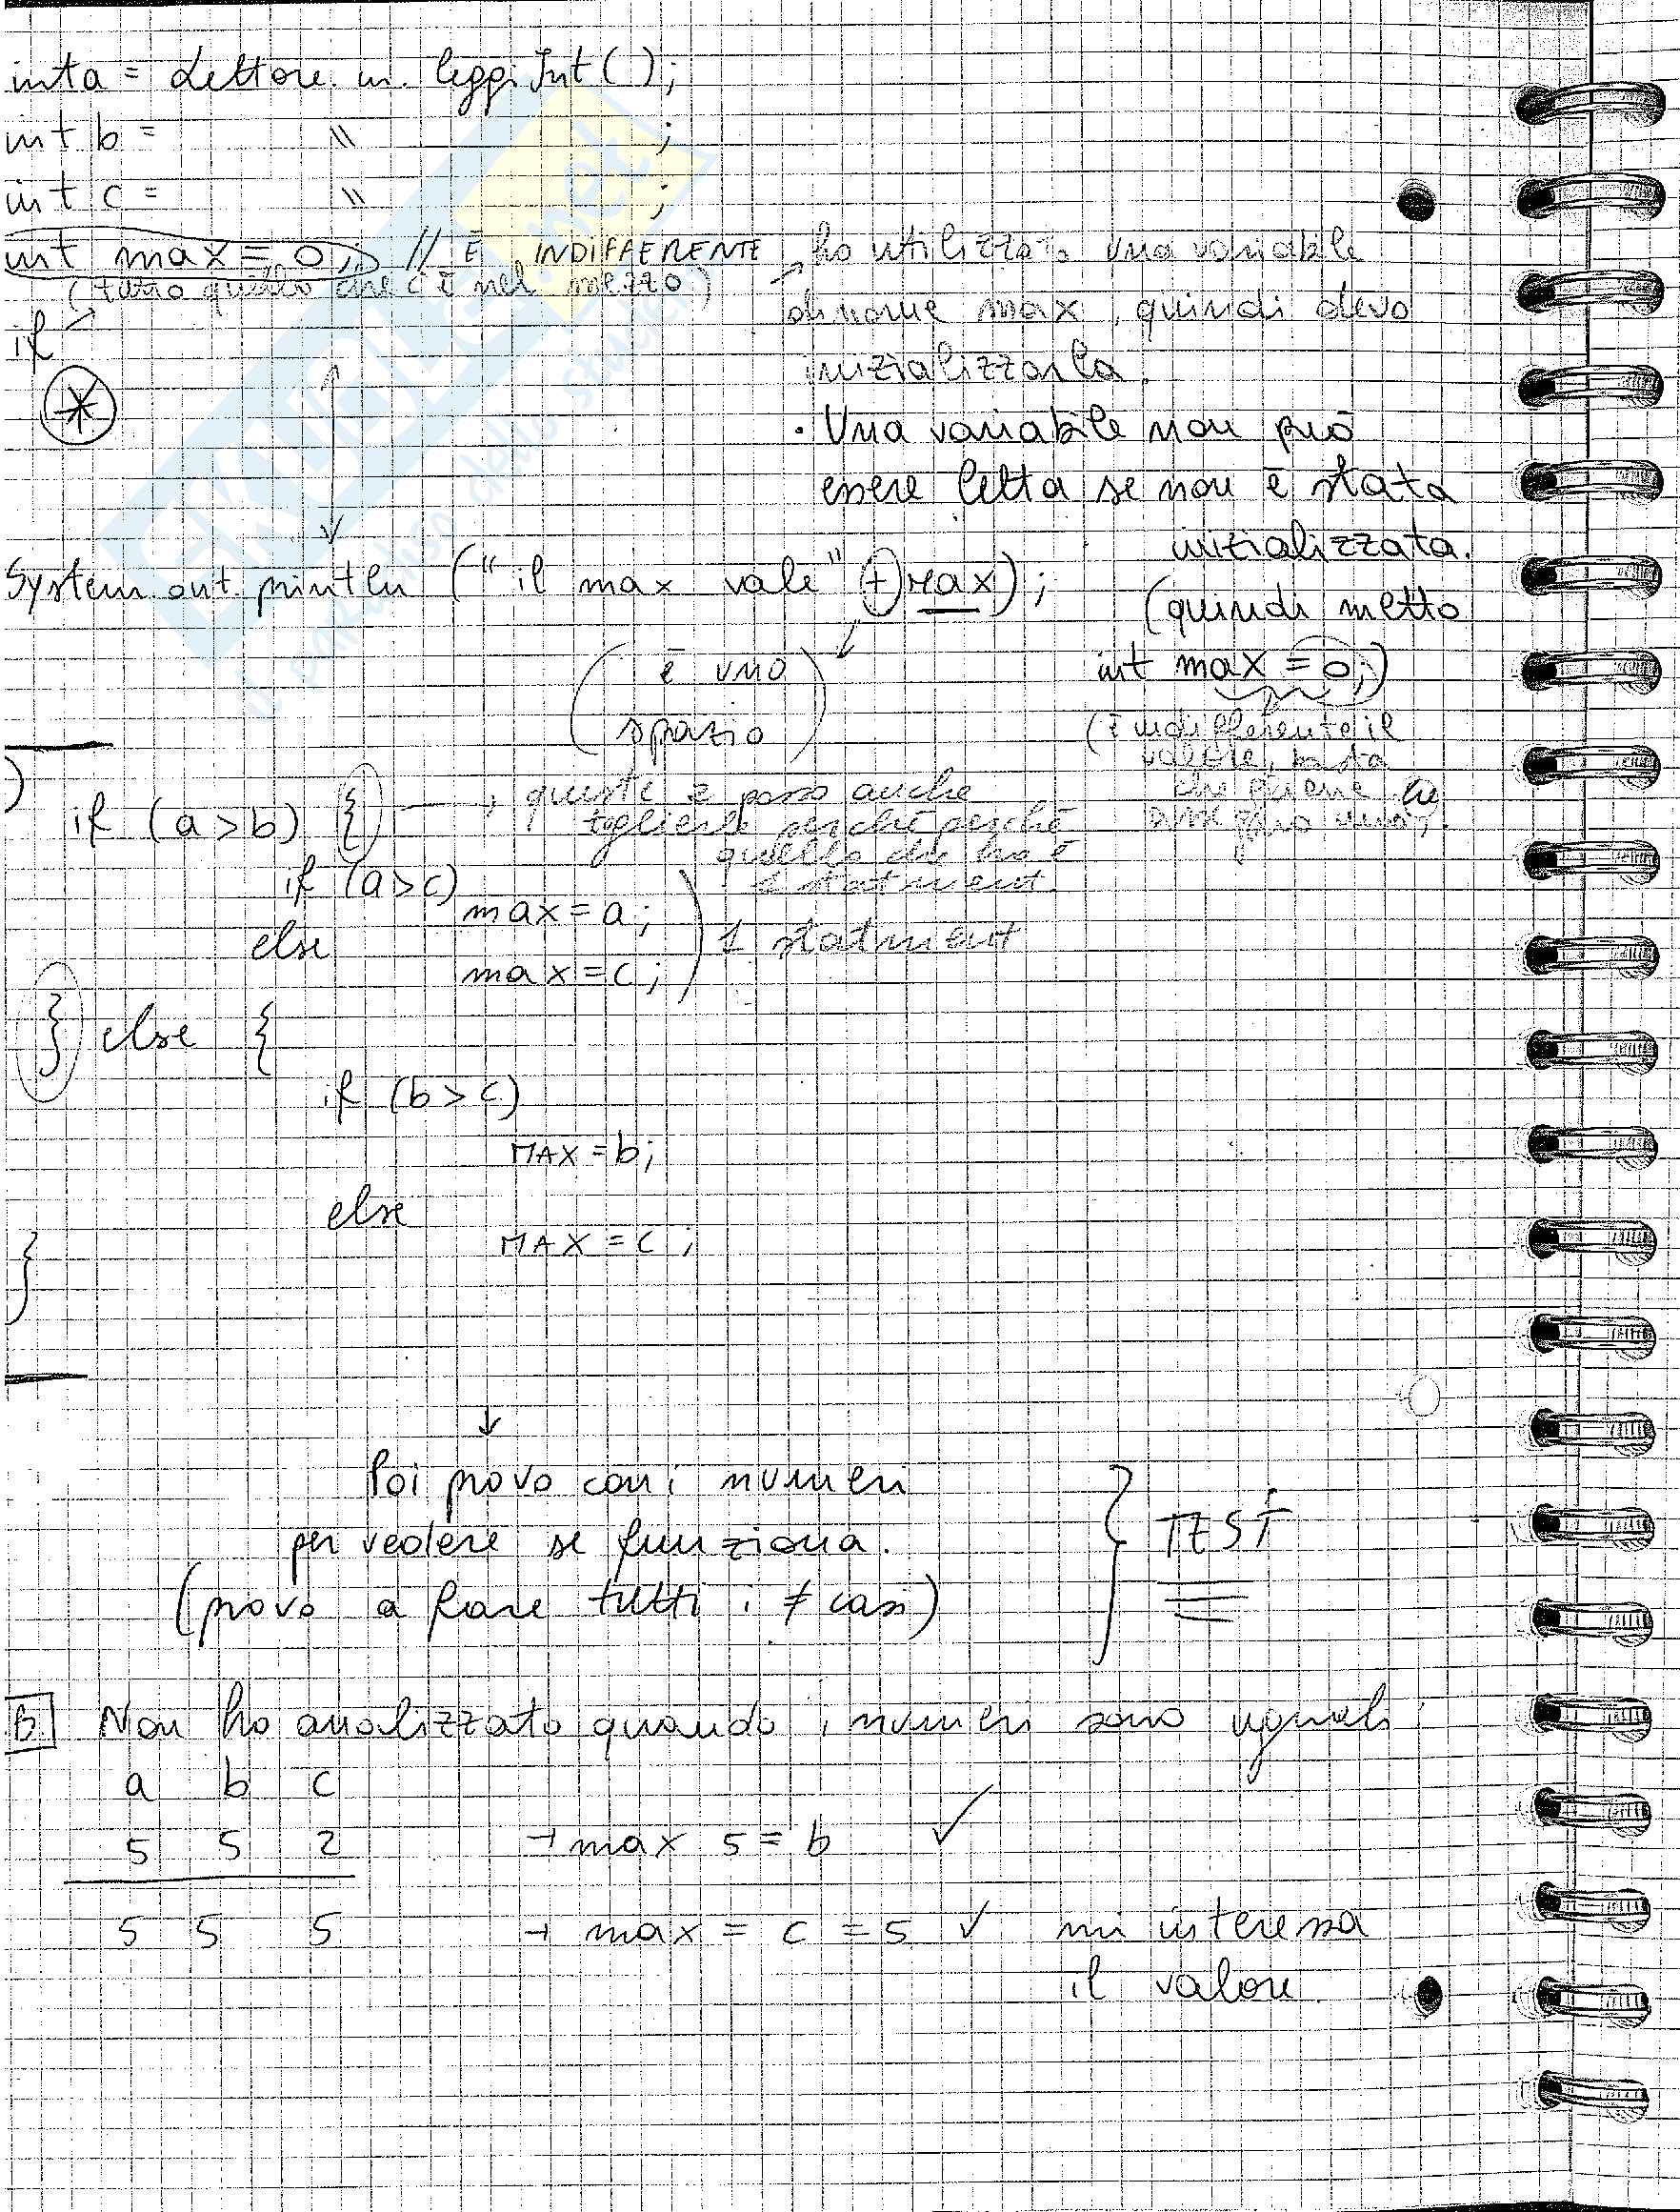 int a = Lettore.in.leggiInt();
int b = " ;
int c = " ;
int max = 0; // È INDIFFERENTE
(tutto quello che c'è nel mezzo)
if
ho utilizzato una variabile
di nome max, quindi devo
inizializzarla.
• Una variabile non può
essere letta se non è stata
inizializzata.
System.out.println ("il max vale" + max);
(quindi metto
int max = 0;)
(è uno
spazio)
(è indifferente il
valore, basta
che gliene
if (a > b) {
queste 2 posso anche
toglierle perché perché
quello che ho è
1 statment.
if (a > c)
max = a;
else
1 statment
max = c;
} else {
if (b > c)
MAX = b;
else
MAX = c;
}
↓
Poi provo con i numeri
per vedere se funziona.
(provo a fare tutti i ≠ casi)
TEST
B Non ho analizzato quando i numeri sono uguali:
a b c
5 5 2 → max 5 = b ✓
5 5 5 → max = c = 5 ✓ mi interessa
il valore.
SKUOLA.net
il paradiso dello studente